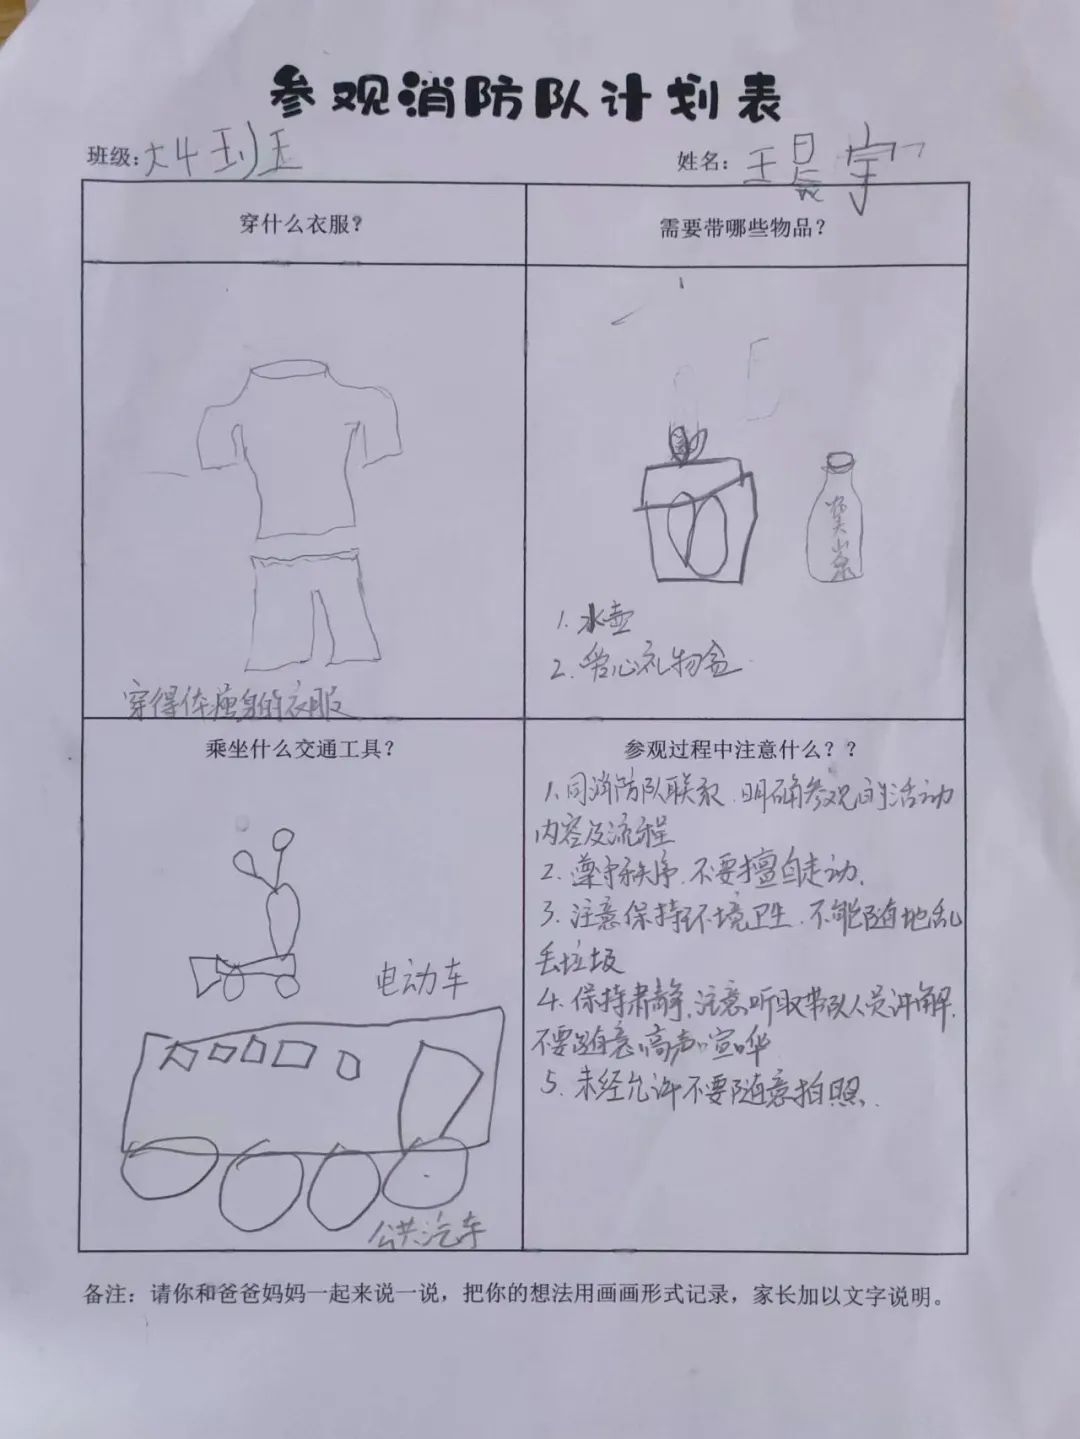 参观消防队计划表
班级：大4班 姓名：王晨宇
穿什么衣服？
需要带哪些物品？
1. 水壶
2. 爱心礼物盒
穿得体瘦身的衣服
乘坐什么交通工具？
电动车
公共汽车
参观过程中注意什么？？
1. 同消防队联系，明确参观的活动
内容及流程
2. 遵守秩序，不要擅自走动.
3. 注意保持环境卫生，不能随地乱
丢垃圾
4. 保持肃静，注意听取带队人员讲解，
不要随意高声喧哗
5. 未经允许不要随意拍照.
备注：请你和爸爸妈妈一起来说一说，把你的想法用画画形式记录，家长加以文字说明。